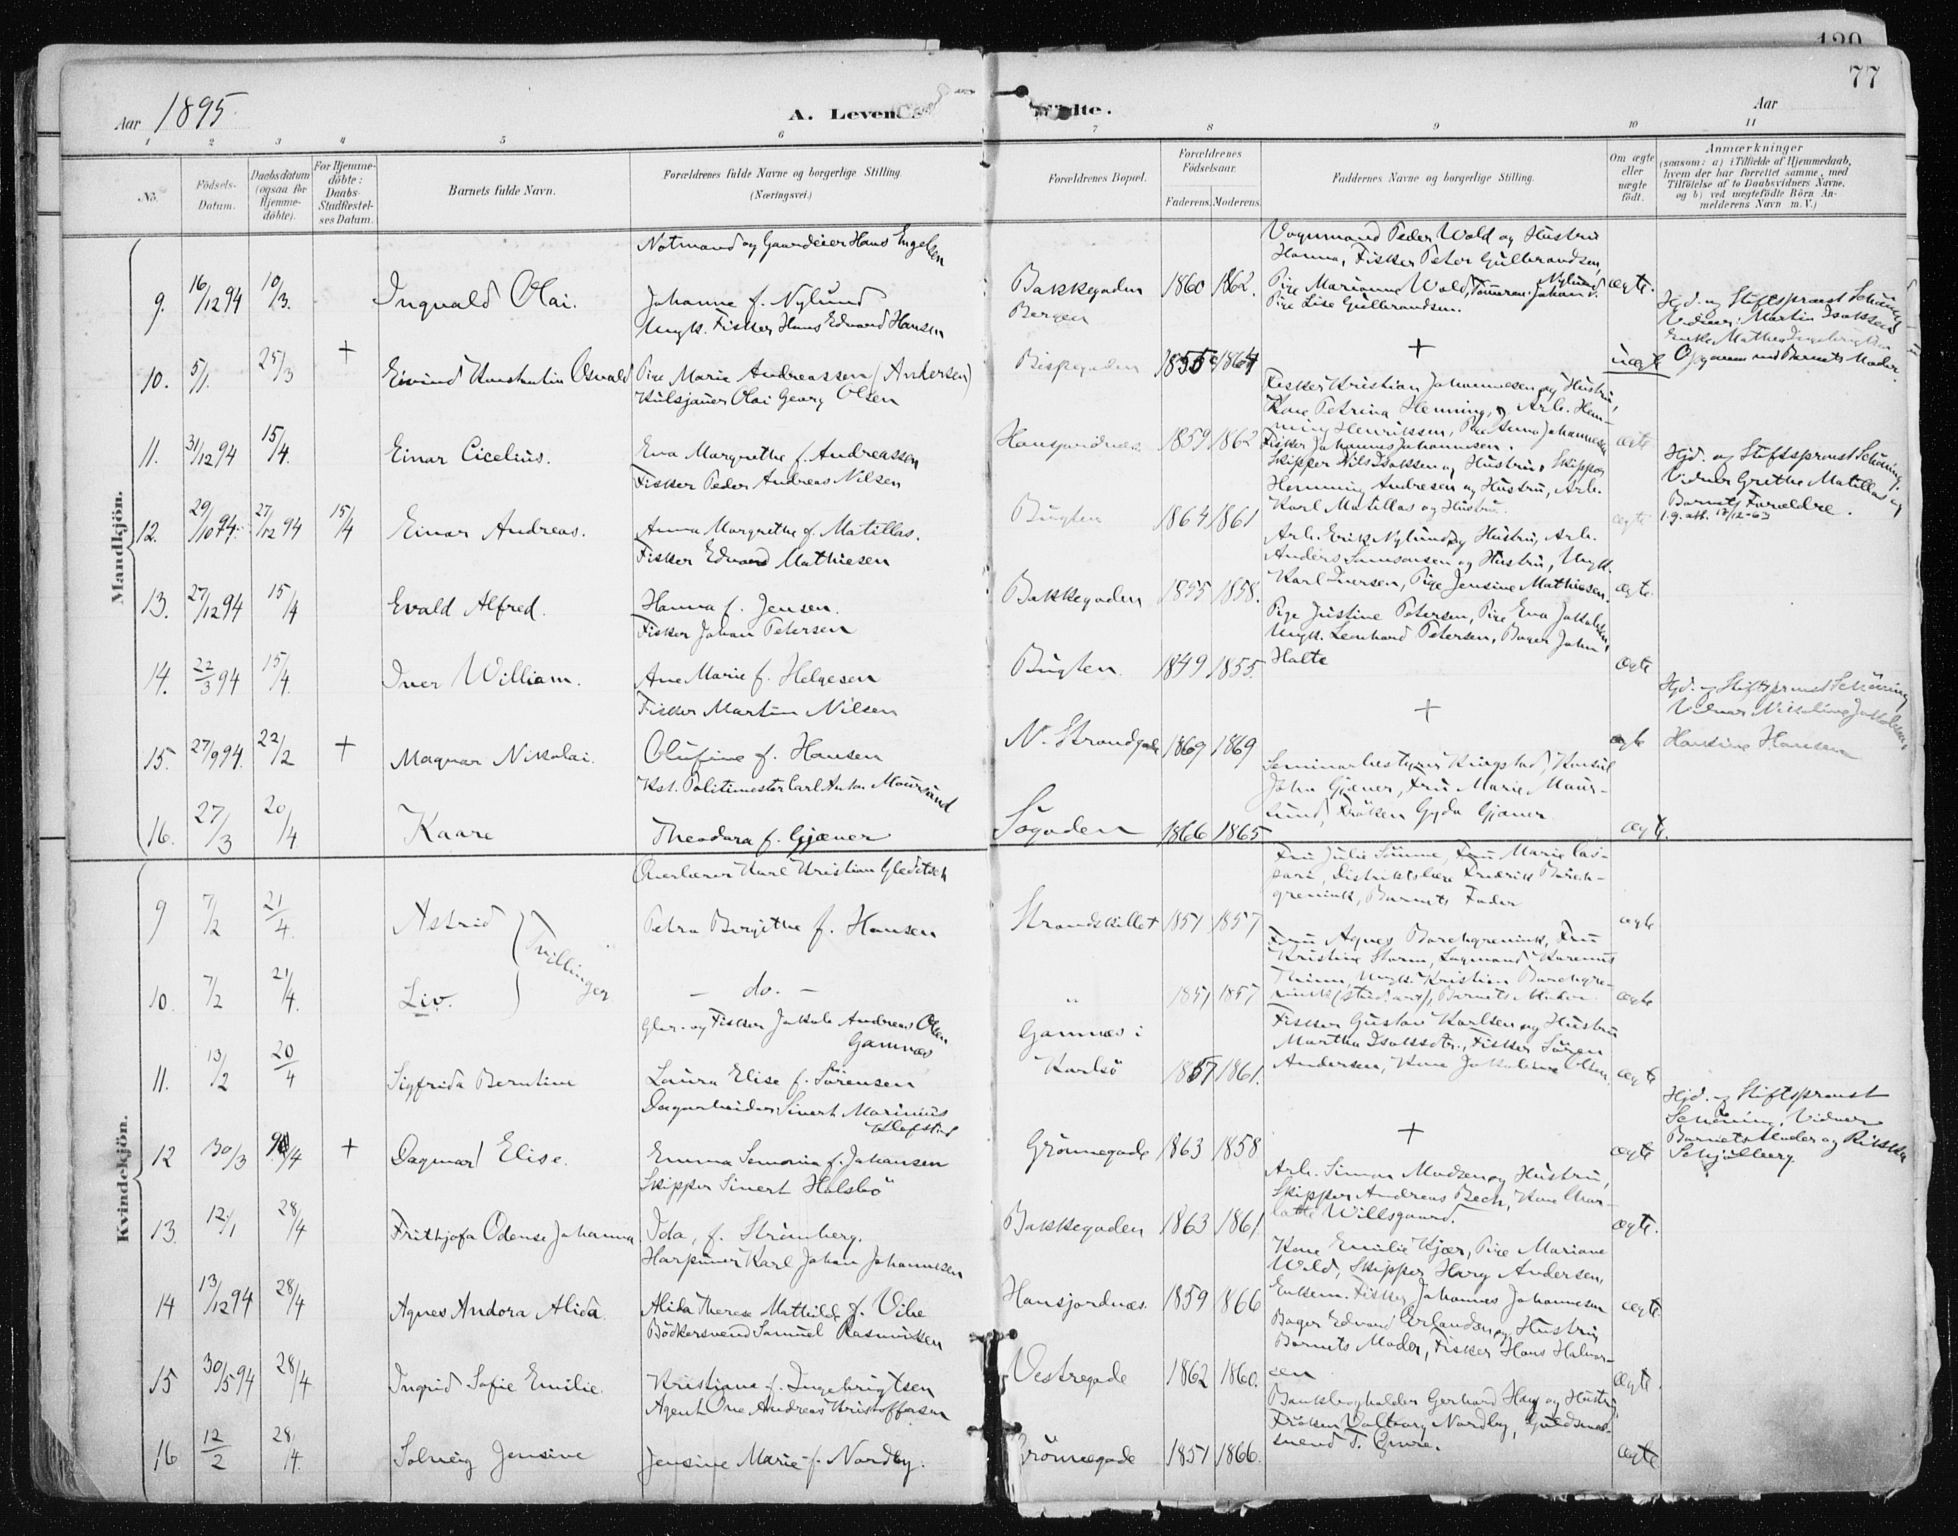 77
Aar 1895.
A. Levende Fødte.
Aar
1 2 3 4 5 6 7 8 9 10 11
No.
Fødsels-Datum.
Daabsdatum (ogsaa for Hjemme-døbte).
For Hjemme-døbte: Daabs-Stadfæstel-ses Datum.
Barnets fulde Navn.
Forældrenes fulde Navne og borgerlige Stilling. (Næringsvei.)
Forældrenes Bopæl.
Forældrenes Fødselsaar.
Faderens. Moderens.
Faddernes Navne og borgerlige Stilling.
Om ægte eller uægte født.
Anmærkninger
(saasom: a) i Tilfælde af Hjemmedaab, hvem der har forrettet samme, med Tilføielse af to Daabsvidners Navne, og b) ved uægtefødte Børn An-melderens Navn m. V.)
Mandkjøn.
Notmand og Gaardeier Hans Engelsen
9. 16/12 94 10/3. Ingvald Olai. Johanne f. Nylund Bakkegaden 1860 1862. ægte.
Vognmand Peder Wold og Hustru
Hanna, Fisker Peter Gulbrandsen,
Pige Marianne Wold, Tømmerm. Johan Nylund.
Pige Lise Gulbrandsen.
Ungk. Fisker Hans Edvard Hansen Bergen
10. 5/1. 25/3 + Eivind Konstantin Osvald Pige Marie Andreassen (Andersen) Bispegaden 1855 1864 + uægte
Hjd. og Stiftsprovst Schøning
Vidner: Martin Isaksens
Enke Mathea Ingebrigtsen
Opgaven ved Barnets Moder.
Kulsjauer Olai Georg Olsen
11. 31/12 94 15/4. Einar Cicelius. Eva Margrethe f. Andreassen Hansjordnæs. 1859 1862 ægte
Fisker Kristian Johannesen og Hustru,
Kone Petrina Henning, Arb. Hen-
ning Henriksen, Pige Anna Johannesen
Fisker Johannes Johannesen.
Fisker Peder Andreas Nilsen
12. 29/10 94. 27/12 94 15/4 Einar Andreas. Anna Margrethe f. Matillas. Bugten 1864 1861 ægte
Skipper Nils Isaksen og Hustru, Skipper
Henning Andresen og Hustru, Arb.
Karl Matillas og Hustru.
Hjd. og Stiftsprovst Schøning.
Vidner Grethe Matillas og
Barnets Forældre.
l.g. att. 12/12-63
Fisker Edvard Mathiesen
13. 27/12 94 15/4 Evald Alfred. Hanna f. Jensen. Bakkegaden 1855 1858. ægte.
Arb. Erik Nylund og Hustru, Arb.
Anders Simonsen og Hustru, Ungk.
Karl Iversen, Pige Jensine Mathiesen.
Fisker Johan Petersen
14. 22/3 94 15/4. Iver William. Ane Marie f. Helgesen Bugten. 1849 1855. ægte
Pige Justine Petersen, Pige Eva Jakobsen,
Ungk. Leonhard Petersen, Bager John
Halte
Fisker Martin Nilsen
15. 27/9 94. 22/2 + Magnar Nikolai. Olufine f. Hansen N. Strandgade 1869 1869 + ægte
Hjd. og Stiftsprovst Schøning
Vidner Nikoline Jakobsen,
Hansine Hansen
Kst. Politimester Carl Anton Moursund
16. 27/3 20/4 Kaare Theodora f. Gjæver Søgaden 1866 1865 ægte.
Seminarbestyrer Ringstad, Konsul
John Gjæver, Fru Marie Mour-
sund, Frøken Gyda Gjæver
Kvindekjøn.
Overlærer Karl Kristian Gleditsch
9 7/2 21/4. Astrid Petra Birgithe f. Hansen Strandskillet 1851 1857 ægte
Tvillinger
Fru Julie Sømme, Fru Marie Cas-
pari, Distriktslæge Fredrik Borch-
grevink, Barnets Fader
10. 7/2 21/4. Liv. - do. - " 1851 1857 ægte
Fru Agnes Borchgrevink, Fru
Kristine Storm, Lagmand Karenus
Thinn, Ungk. Kristian Borchgre-
vink (stud. art), Barnets Moder.
Gbr. og Fisker Jakob Andreas Olsen
Gamnæs
11. 13/2 20/4 Sigfrida Berntine Laura Elise f. Sørensen Gamnæs i Karlsø 1857 1861. ægte
Fisker Gustav Karlsen og Hustru
Martha Isaksdtr., Fisker Søren
Andersen, Kone Jakobine Olsen
Dagarbeider Sivert Marinius
Klefstad
12 30/3 9/4 + Dagmar Elise. Emma Semonia f. Johansen Grønnegade 1863 1858 + ægte
Hjd. og Stiftsprovst
Schøning, Vidner
Barnets Moder og Rikka
Schjølberg.
Skipper Sivert Halsbø
13. 12/1 28/4 Frithjofa Odense Johanna Ida, f. Strømberg. Bakkegaden 1863 1861. ægte.
Arb. Simon Madsen og Hustru,
Skipper Andreas Bech, Kone Char-
lotte Willsgaard.
Harpuner Karl Johan Johannesen
14 13/12 94 28/4 Agnes Andora Alida. Alida Therese Mathilde f. Vibe Hansjordnæs. 1859 1866 ægte
Kone Emilie Kjær, Pige Mariane
Wold, Skipper Harry Andersen,
Enkem. Fisker Johannes Johannesen
Bødkersvend Samuel Rasmussen
15 30/5 94 28/4 Ingrid Sofie Emilie. Kristiane f. Ingebrigtsen Vestregade 1862 1860. ægte.
Bager Edvard Erlandsen og Hustru,
Barnets Moder, Fisker Hans Halvor-
sen
Agent Ove Andreas Kristoffersen
16 12/2 28/4. Solveig Jensine Jensine Marie f. Nordby. Grønnegade 1851 1866. ægte
Bankbogholder Gerhard Hay og Hustru,
Frøken Valborg Nordby, Guldsmed-
svend T.